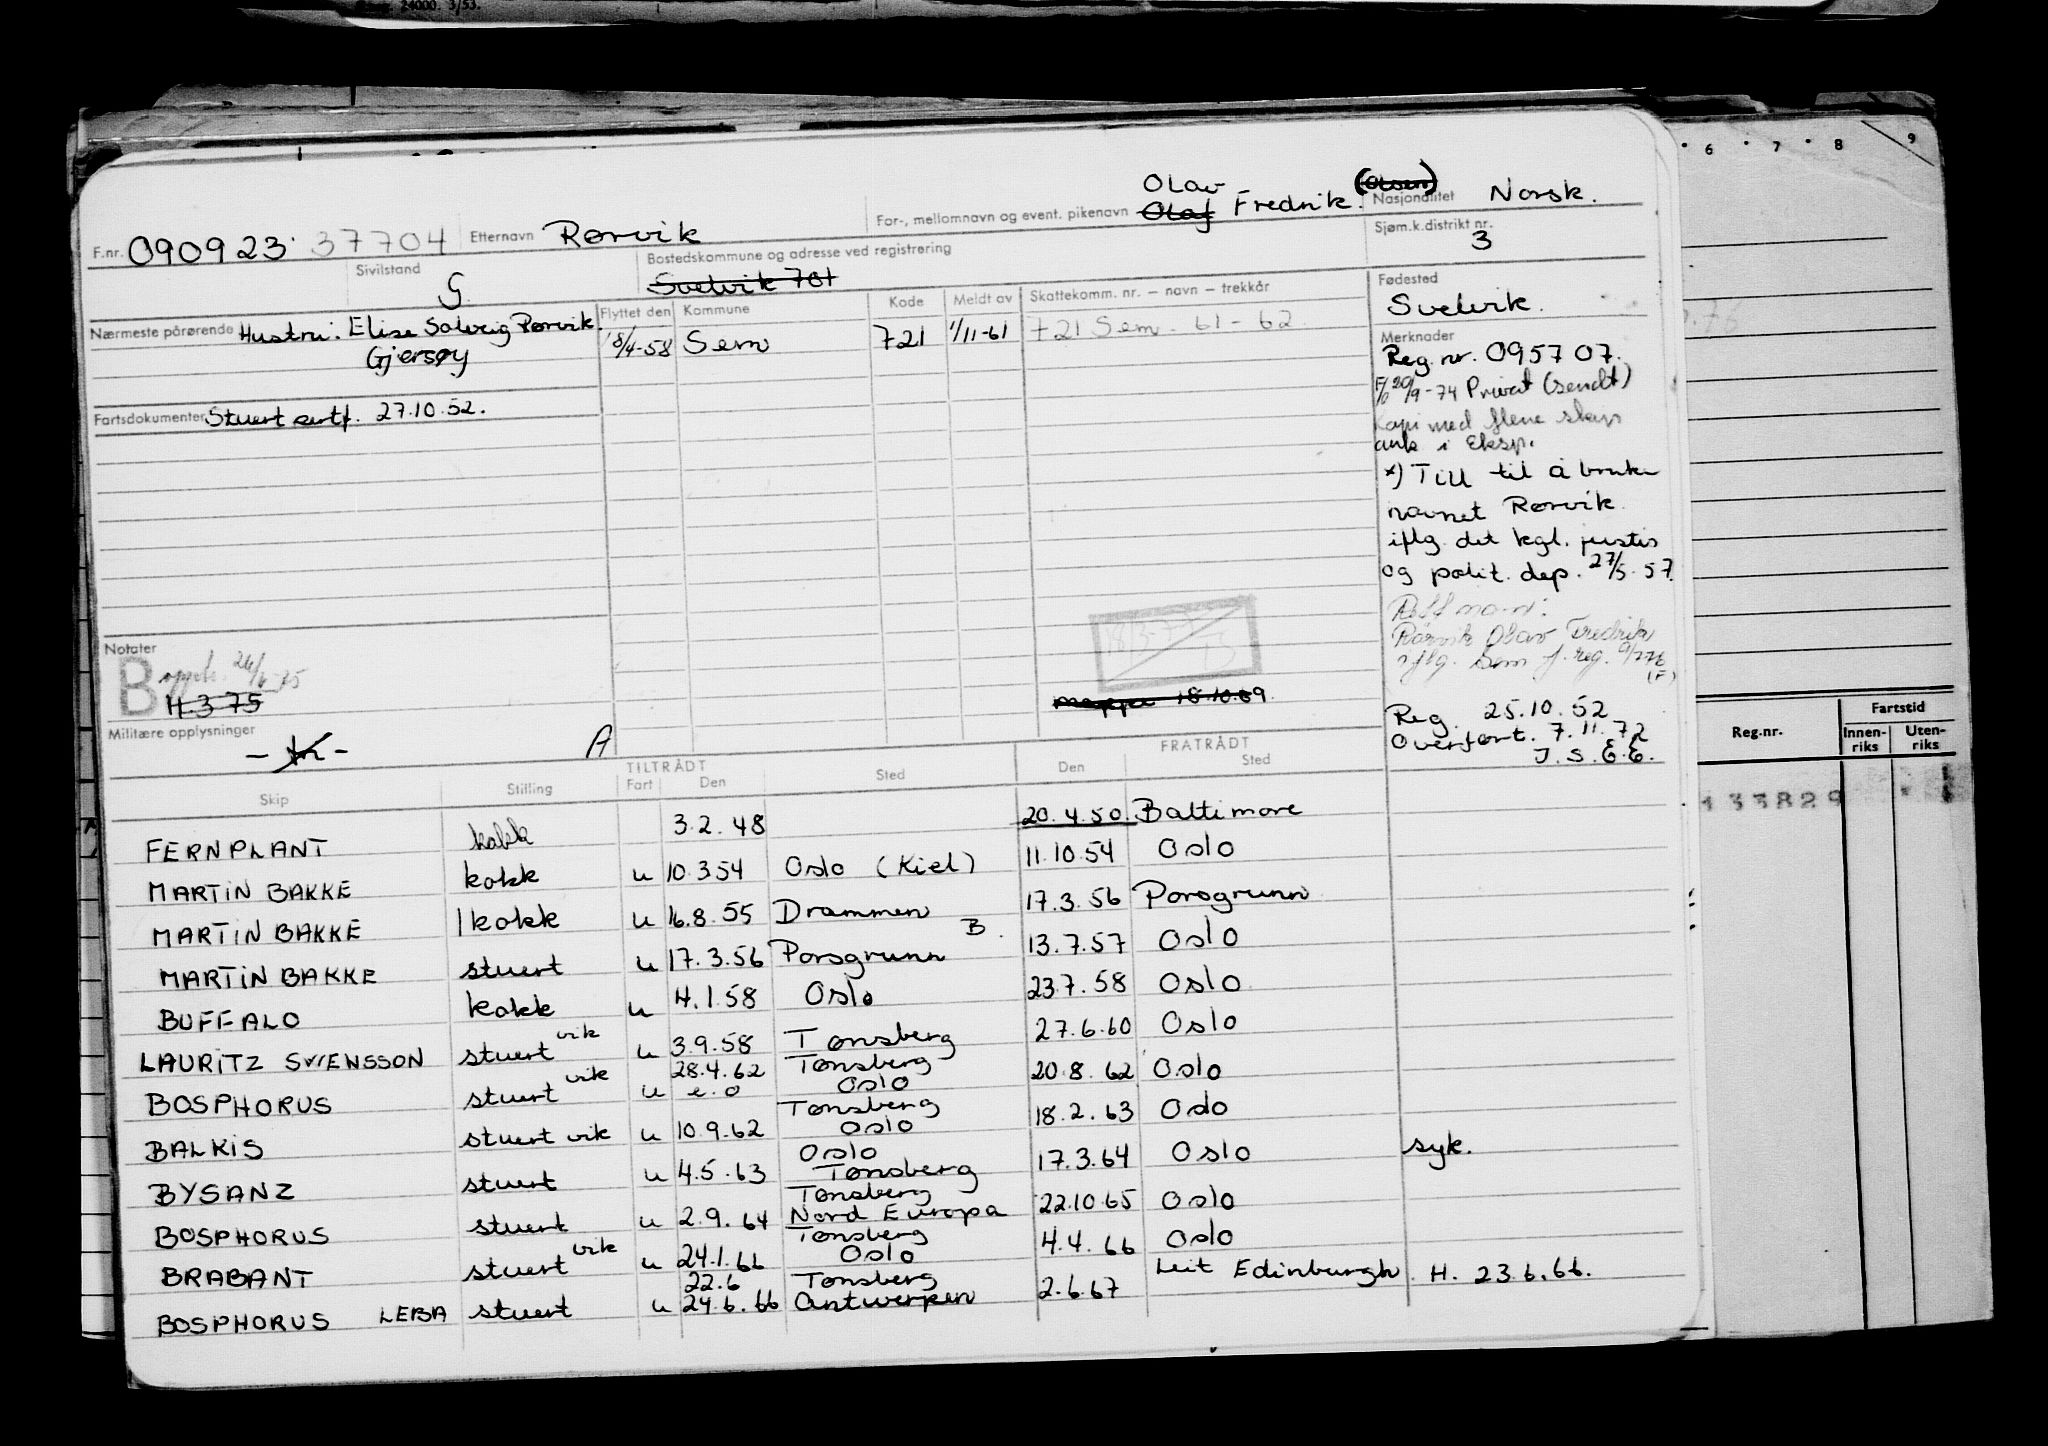 24000. 3/53.
6 7 8 9
F.nr. 090923 37704 Etternavn Rørvik For-, mellomnavn og event. pikenavn Olav Olaf Fredrik. (Olsen) Nasjonalitet Norsk.
Sivilstand G. Bostedskommune og adresse ved registrering Svelvik 701 Sjøm.k.distrikt nr. 3
Nærmeste pårørende Hustru: Elise Solveig Rørvik.
Gjersøy
Flyttet den Kommune Kode Meldt av Skattekomm. nr. — navn — trekkår
18/4-58 Sem 721 1/11-61 721 Sem. 61-62
Fartsdokumenter Stuert sertf. 27.10.52.
Fødested
Svelvik.
Merknader
Reg. nr. 095707.
20/9-74 Privat (sendt)
Kopi med flere skip
i Eksp.
x) Till til å bruke
navnet Rørvik
iflg. det kgl. justis
og polit. dep. 27/5.57.
Rørvik Olav Fredrik
iflg. Sem f.reg.
(F)
Reg. 25.10.52
Overført. 7.11.72
J.S.E.E.
Notater
B
4.3.75
Militære opplysninger
A
18.10.69.
TILTRÅDT FRATRÅDT
Skip Stilling Fart Den Sted Den Sted
FERNPLANT kokk 3.2.48 20.4.50. Baltimore
MARTIN BAKKE kokk u 10.3.54 Oslo (Kiel) 11.10.54 Oslo
MARTIN BAKKE 1 kokk u 16.8.55 Drammen 17.3.56 Porsgrunn
MARTIN BAKKE stuert u 17.3.56 Porsgrunn B. 13.7.57 Oslo
BUFFALO kokk u 4.1.58 Oslo 23.7.58 Oslo
LAURITZ SVENSSON stuert vik u 3.9.58 Tønsberg 27.6.60 Oslo
BOSPHORUS stuert vik u 28.4.62 e.o Tønsberg Oslo 20.8.62 Oslo
BALKIS stuert vik u 10.9.62 Tønsberg Oslo 18.2.63 Oslo
BYSANZ stuert u 4.5.63 Oslo Tønsberg 17.3.64 Oslo syk.
BOSPHORUS stuert u 2.9.64 Tønsberg Nord Europa 22.10.65 Oslo
BRABANT stuert vik u 24.1.66 Tønsberg Oslo 4.4.66 Oslo
BOSPHORUS LEBA stuert u 22.6 24.6.66 Tønsberg Antwerpen 2.6.67 Leit Edinburgh H. 23.6.66.
Reg.nr. Fartstid
Innen-riks Uten-riks
133829